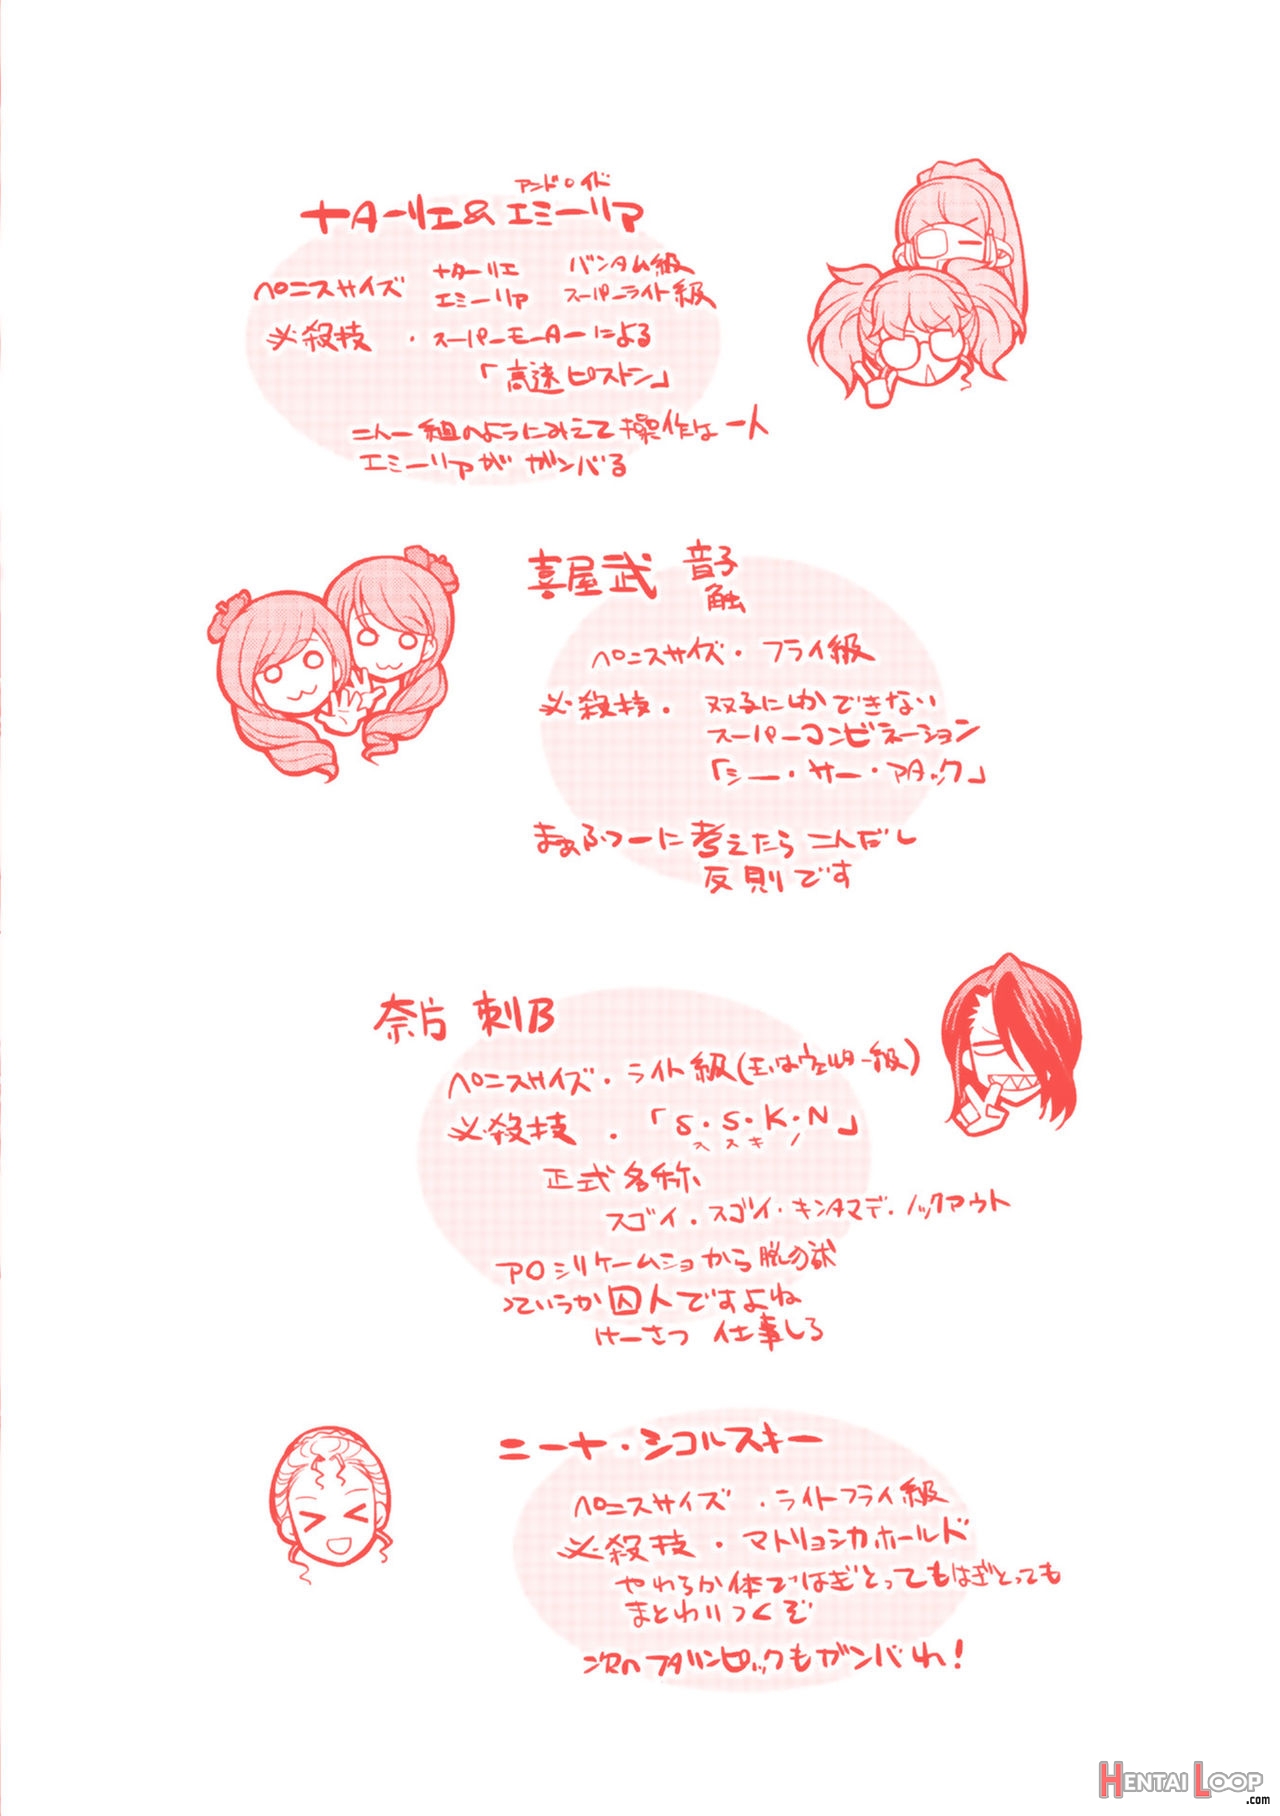 アンドロイド
ナターリエ&エミーリア
ペニスサイズ ナターリエ バンタム級
エミーリア スーパーライト級
必殺技・スーパーモーターによる
「高速ピストン」
二人一組のようにみえて操作は一人
エミーリアがガンバる
喜屋武 音子
触
ペニスサイズ・フライ級
必殺技・双子にしかできない
スーパーコンビネーション
「シー・サー・アタック」
まぁふつーに考えたら二人だし
反則です
奈片 刺B
ペニスサイズ・ライト級(玉はウェルター級)
必殺技・「S・S・K・N」
ススキノ
正式名称
スゴイ・スゴイ・キンタマデ・ノックアウト
アOシリケームショから脱の獄
っていうか囚人ですよね
けーさつ 仕事しろ
ニーナ・シコルスキー
ペニスサイズ・ライトフライ級
必殺技・マトリョシカホールド
やわらか体ではぎとってもはぎとっても
まとわりつくぞ
次のフタリンピックもガンバれ!
HENTAI LOOP
.com